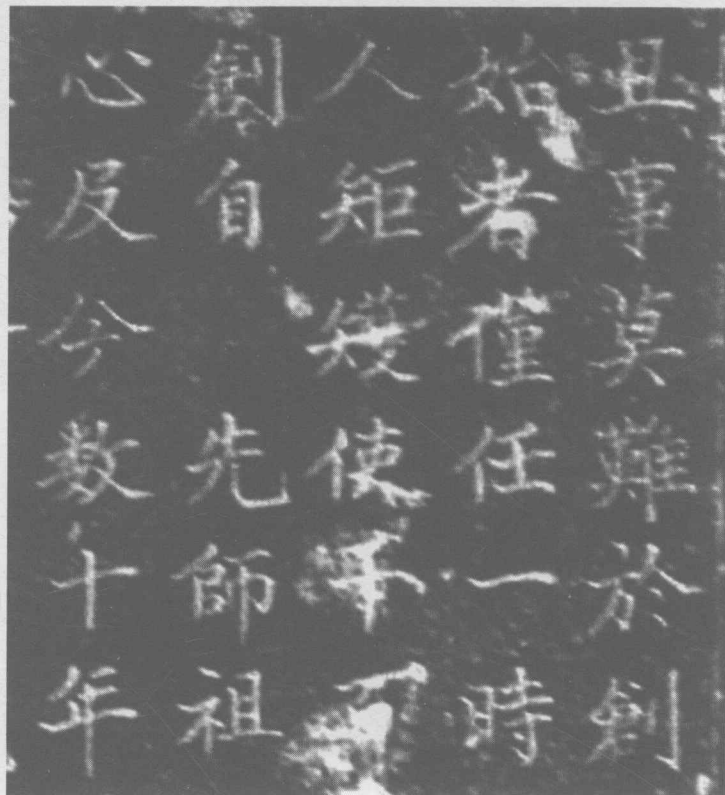 且事莫難於創
始者僅任一時
人矩矱使
自 先師祖
心及今数十年